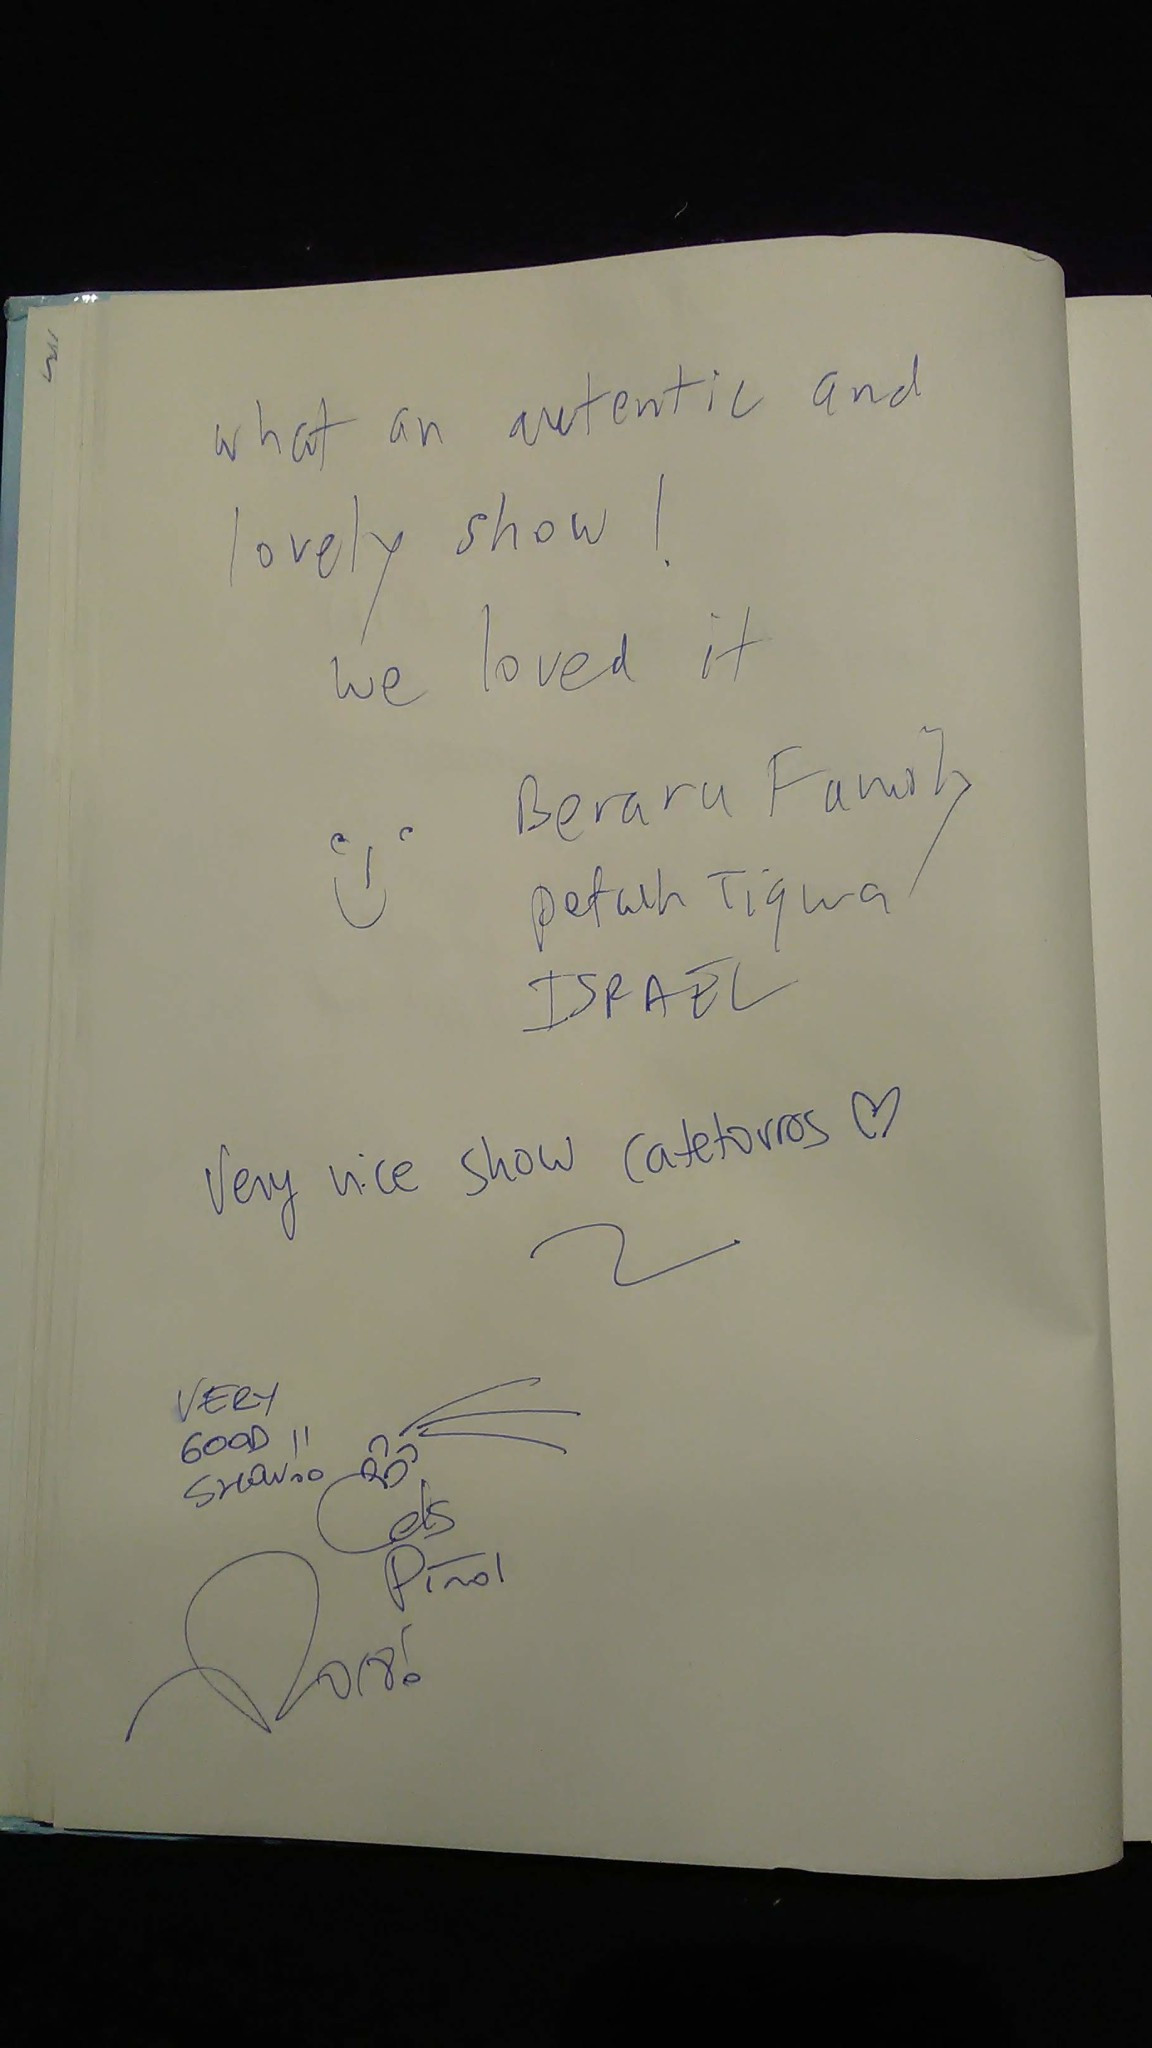 what an autentic and
lovely show!
we loved it
Beraru Family
petah Tiqwa
ISRAEL
Very nice show catetorros ♡
VERY
GOOD!!
SHOW!!
Cels
Piñol